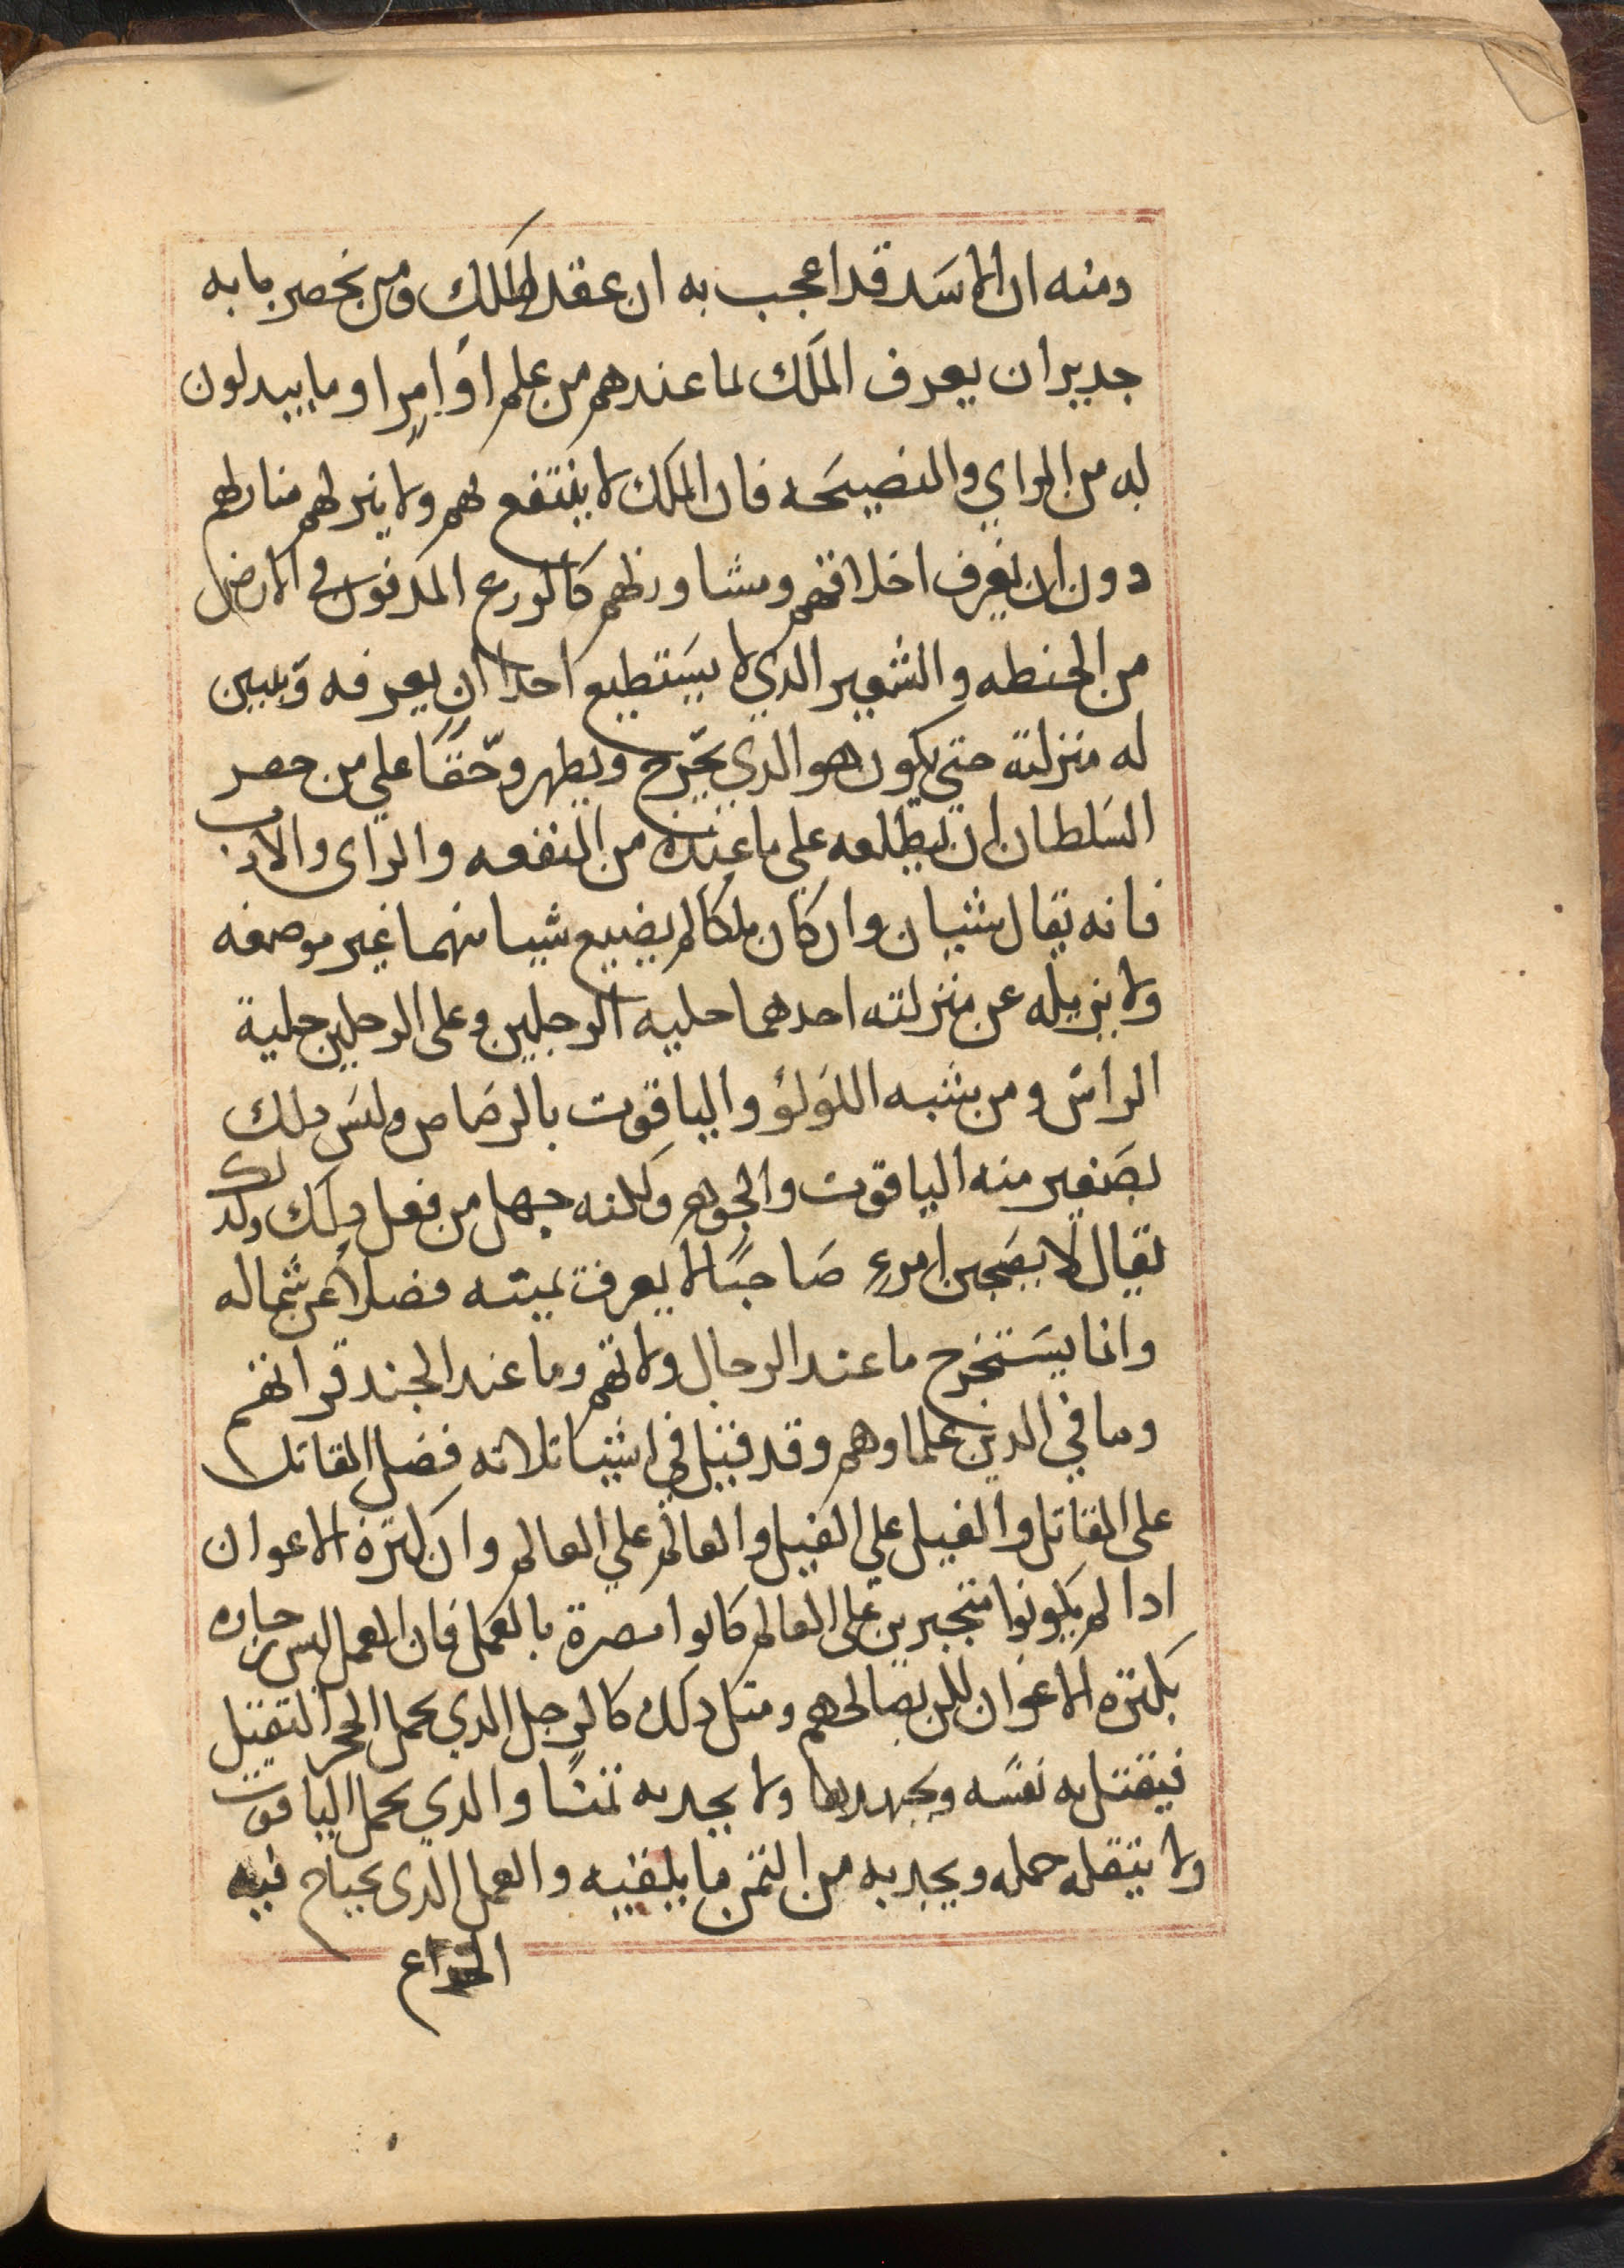 دمنه ان الاسد قد اعجب به ان عقد الملك ومن بحصر بابه
جدير ان يعرف الملك لما عندهم من علم او امرا وما يبدلون
له من الراي والنصيحه فان الملك لا ينتفع بهم ولا ينزلهم منازلهم
دون ان يعرف اخلاقهم ومشاورتهم كالزرع المدفون في الارض
من الحنطه والشعير الدي لا يستطيع احدا ان يعرفه ويبين
له منزلته حتي يكون هو الدي يخرج ويظهر وحقًا علي من حصر
السلطان ان يطلعه على ما عنده من المنفعه والراى والادب
فانه يقال شيان وان كان ملكا لم يضيع شيا منهما غير موضعه
ولا يزيله عن منزلته احدهما حليه الرجلين وعلى الرجلين حلية
الراس ومن يشبه اللولؤ والياقوت بالرصاص وليس دلك
بصغير منه الياقوت والجوهر ولكنه جهل من فعل دلك ولدلك
يقال لا يصحبن امرء صاحبًا لا يعرف يمينه فضلا عن شماله
وانما يستخرج ما عند الرجال ولاتهم وما عند الجند قراتهم
وما في الدين علماوهم وقد قيل في اشيا تلاته فضل المقاتل
على المقاتل والفيل علي الفيل والعالم علي العالم وان كتره الاعوان
ادا لم يكونوا متجبرين على العالم كانوا مضرة بالعمل فان العمل ليس جازه
بكتره الاعوان لكن بصالحهم ومتل دلك كالرجل الدي يحمل الحجر التقيل
فيقتل به نفسه ويجهدها ولا يجد به تمنا والدي يحمل الياقوت
ولا يتقله حمله ويجد به من التمن ما يكفيه والعمل الدى يحتاج فيه